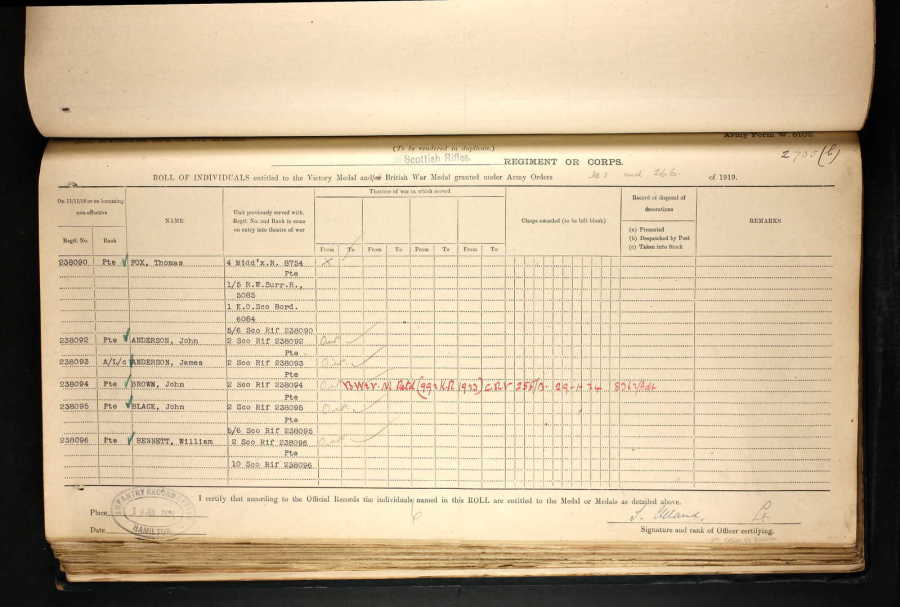 Army Form W. 5102
(To be rendered in duplicate.)
2705(b)
Scottish Rifles. REGIMENT OR CORPS.
ROLL OF INDIVIDUALS entitled to the Victory Medal and/or British War Medal granted under Army Orders and 266. of 1919.
On 11/11/18 or on becoming non-effective
Regtl. No.
Rank
NAME
Unit previously served with. Regtl. No. and Rank in same on entry into theatre of war
Theatres of war in which served
From To From To From To From To
Clasps awarded (to be left blank)
Record of disposal of decorations
(a) Presented
(b) Despatched by Post
(c) Taken into Stock
REMARKS
238090 Pte FOX, Thomas 4 Midd'x.R. 8754 X
Pte
1/5 R.W.Surr.R.,
5083
1 K.O.Sco Bord.
6084
5/6 Sco Rif 238090
238092 Pte ANDERSON, John 2 Sco Rif 238092
Pte
238093 A/L/c ANDERSON, James 2 Sco Rif 238093
Pte
238094 Pte BROWN, John 2 Sco Rif 238094 B.W & V.M. Retd (992 K.R. 1923)
Pte
238095 Pte BLACK, John 2 Sco Rif 238095
Pte
5/6 Sco Rif 238095
238096 Pte BENNETT, William 2 Sco Rif 238096
Pte
10 Sco Rif 238096
I certify that according to the Official Records the individuals named in this ROLL are entitled to the Medal or Medals as detailed above.
Place
INFANTRY RECORD
HAMILTON
Date
6
Lt
Signature and rank of Officer certifying.